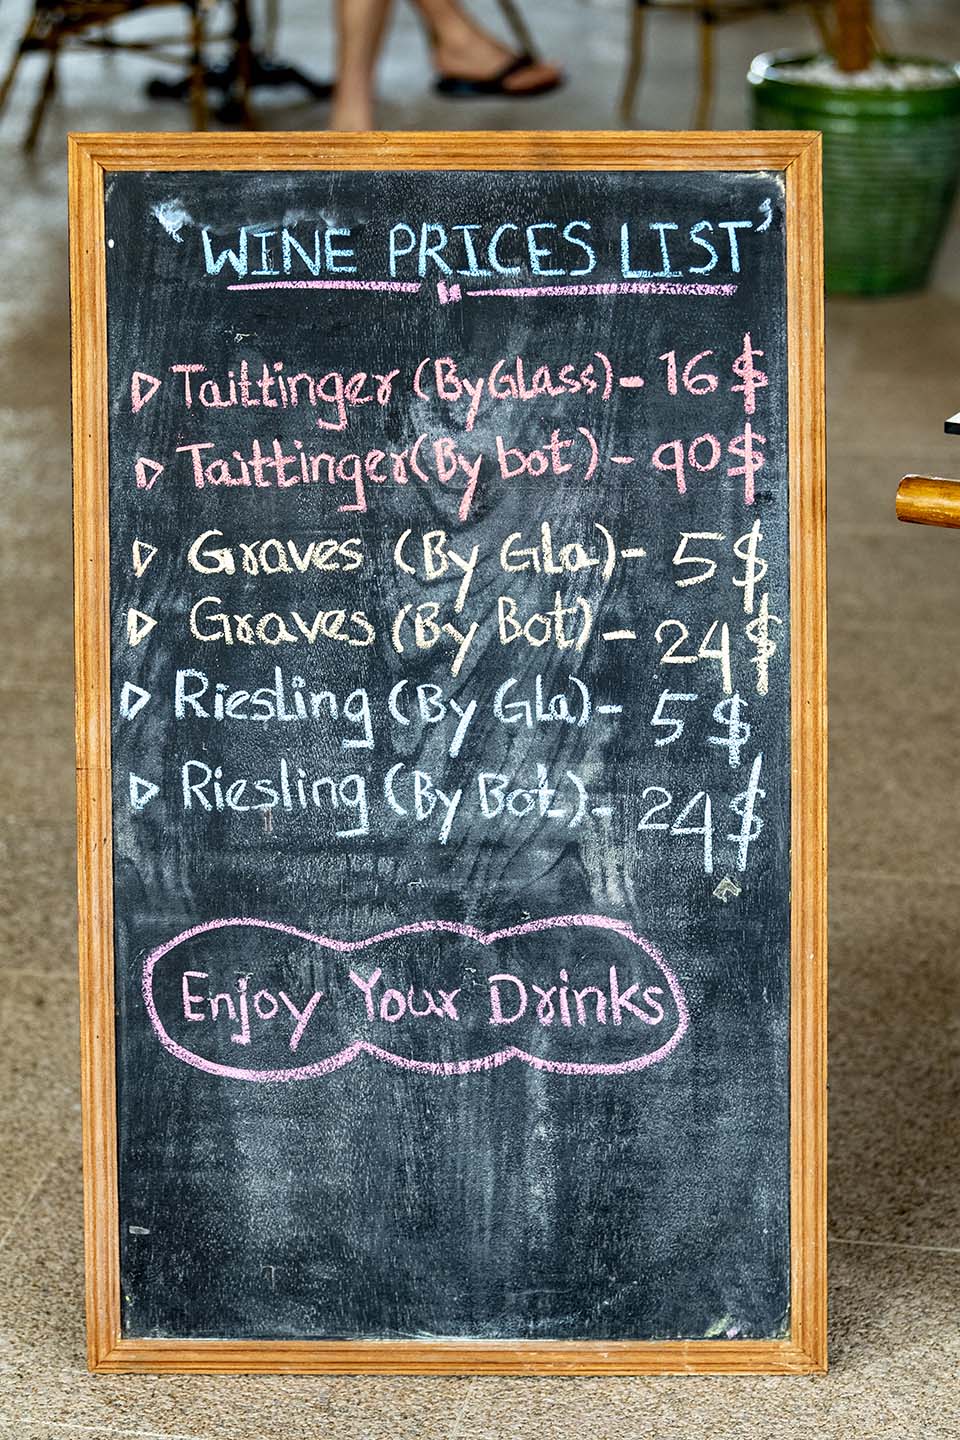 'WINE PRICES LIST'
▷ Taittinger (By Glass) - 16 $
▷ Taittinger (By bot) - 90 $
▷ Graves (By Gla) - 5 $
▷ Graves (By Bot) - 24 $
▷ Riesling (By Gla) - 5 $
▷ Riesling (By Bot) - 24 $
Enjoy Your Drinks